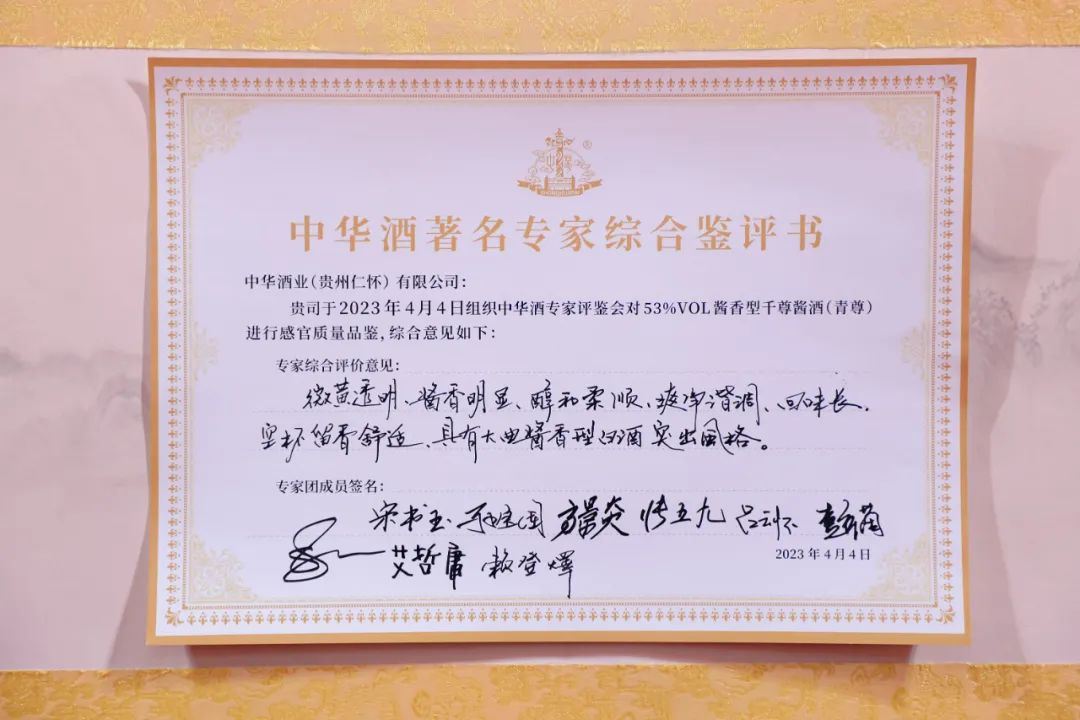 中华酒著名专家综合鉴评书
中华酒业(贵州仁怀)有限公司:
贵司于2023年4月4日组织中华酒专家评鉴会对53%VOL酱香型千尊酱酒(青尊)
进行感官质量品鉴,综合意见如下:
专家综合评价意见:
微黄透明、酱香明显、醇和柔顺、爽净谐调、回味长、
空杯留香舒适、具有大曲酱香型白酒突出风格。
专家团成员签名:
宋书玉 方景炎 吕云怀
2023年4月4日
艾哲庸 赖登燡